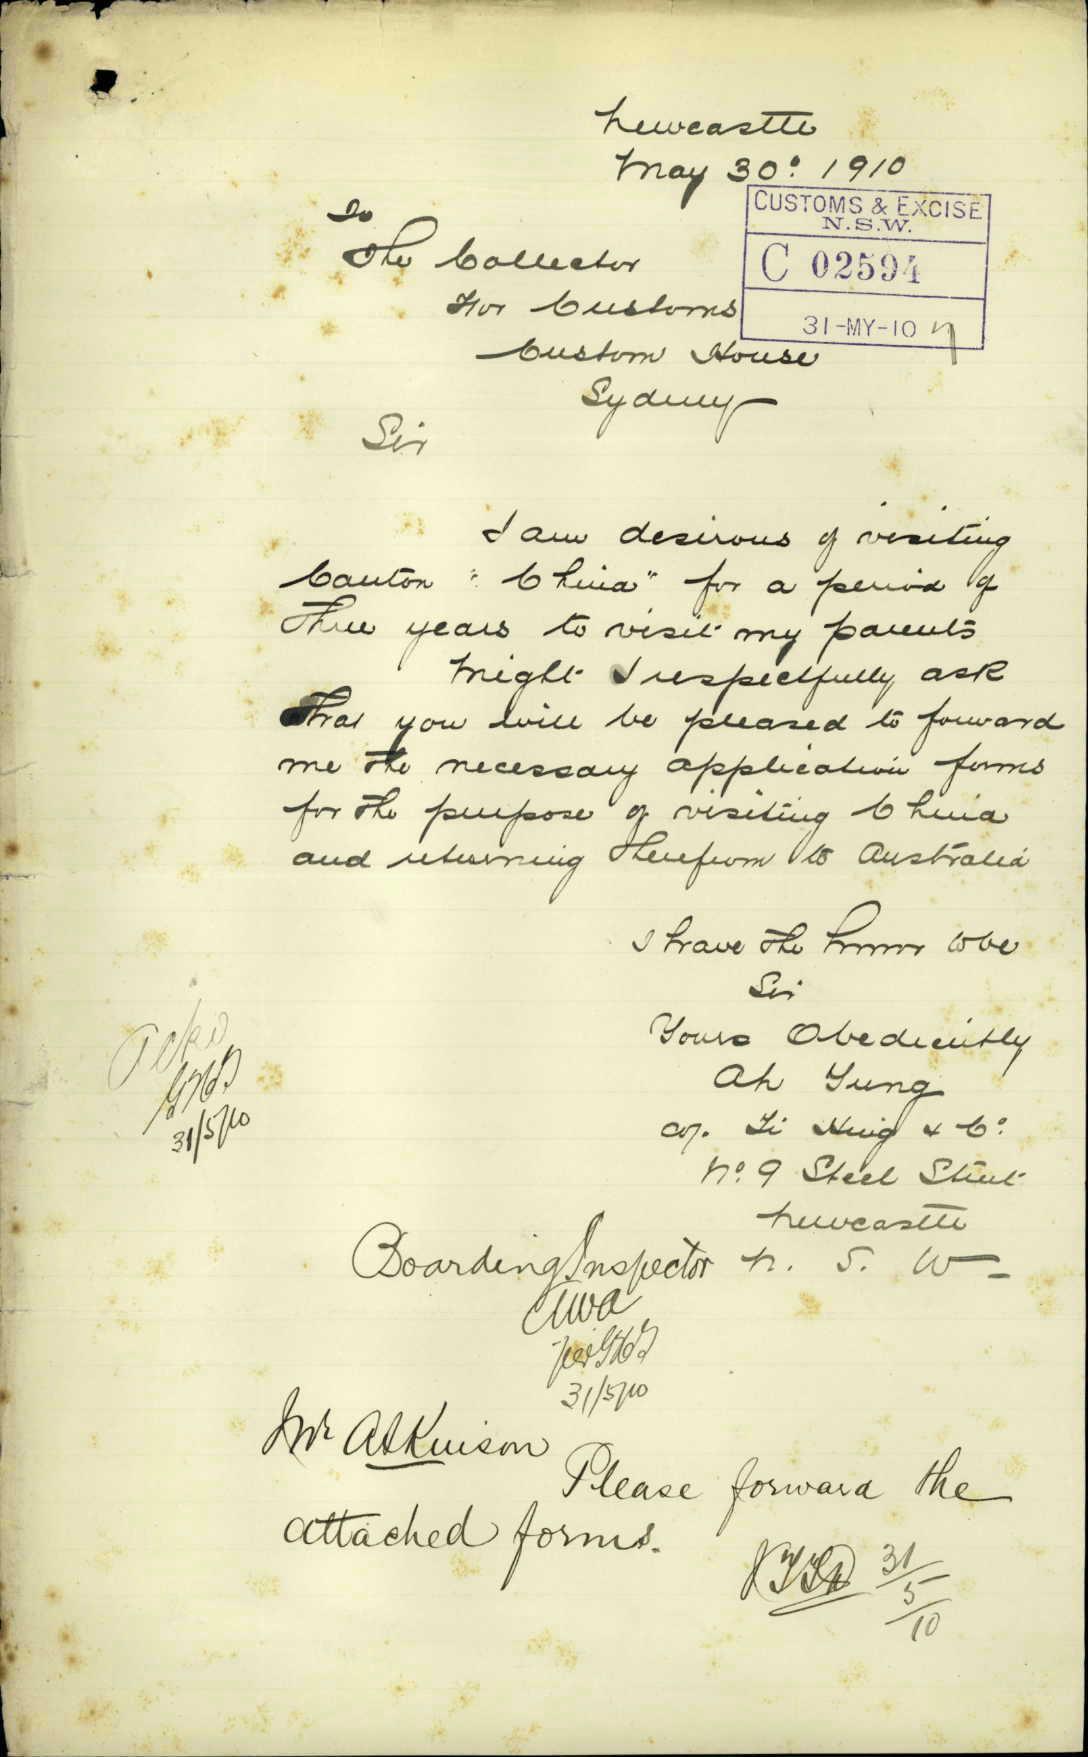 Newcastle
May 30º 1910
CUSTOMS & EXCISE
N.S.W.
C 02594
31-MY-10
To
The Collector
For Customs
Custom House
Sydney
Sir
I am desirous of visiting
Canton "China" for a period of
Three years to visit my parents
Might I respectfully ask
That you will be pleased to forward
me the necessary application forms
for the purpose of visiting China
and returning Therefrom to Australia
I have the honor to be
Sir
Yours Obediently
Ah Yung
31/5/10
No. 9 Steel Street
Newcastle
N. S. W
Boarding Inspector
31/5/10
Mr Atkinson
Please forward the
attached forms.
31/5/10